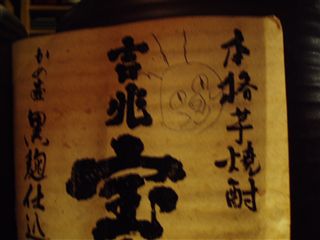 本格芋焼酎
吉兆
宝
かめ壷
黒麹仕込